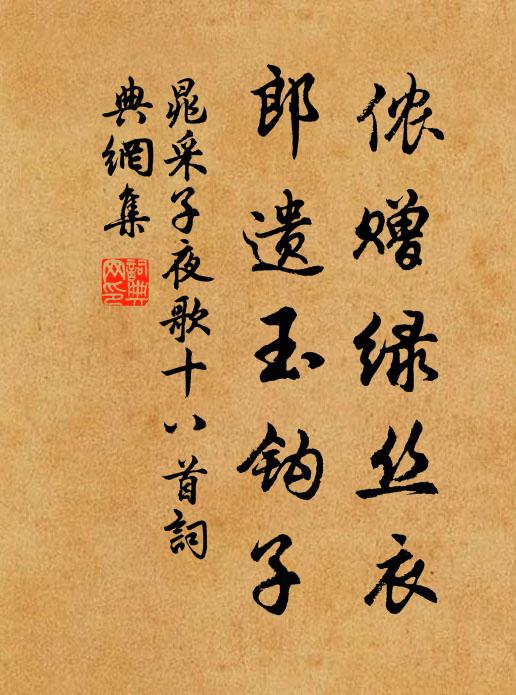 侬赠绿丝衣
郎遗玉钩子
晁采子夜歌十八首詞
典網集
詞典
网印